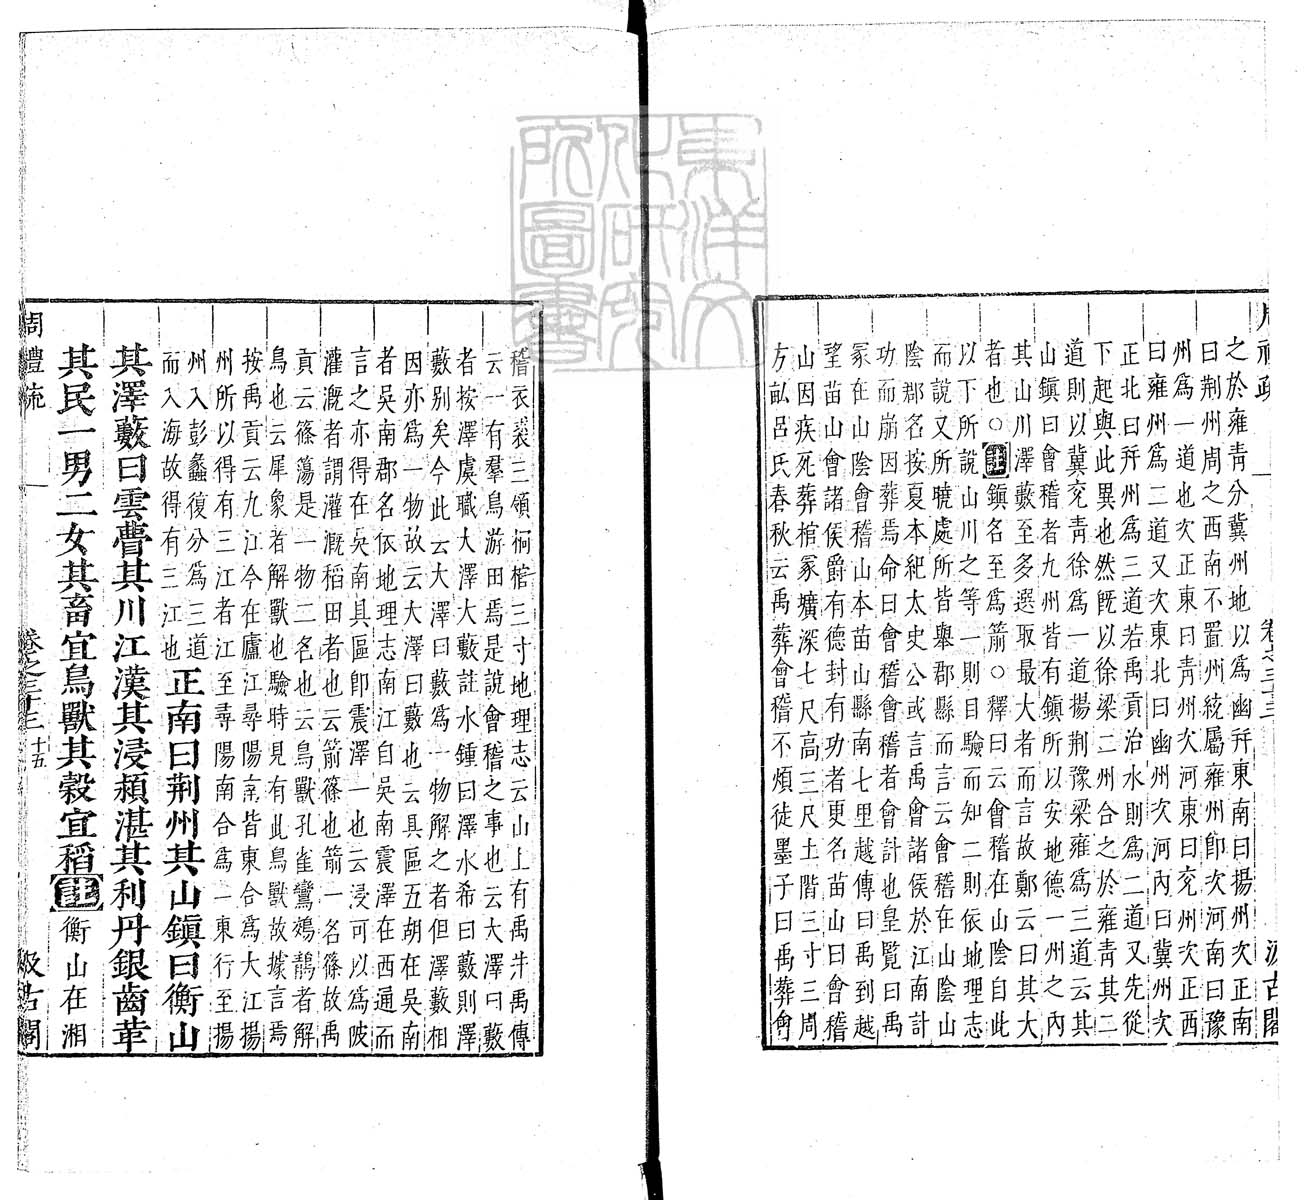 之於雍青分冀州地以爲幽幷東南曰揚州次正南
曰荆州周之西南不置州統屬雍州卽次河南曰豫
州爲一道也次正東曰青州次河東曰兖州次正西
曰雍州爲二道又次東北曰幽州次河內曰冀州次
正北曰幷州爲三道若禹貢治水則爲二道又先從
下起與此異也然旣以徐梁二州合之於雍青其二
道則以冀兖青徐爲一道揚荆豫梁雍爲三道云其
山鎮曰會稽者九州皆有鎮所以安地德一州之內
其山川澤藪至多選取最大者而言故鄭云曰其大
者也○註鎮名至爲箭○釋曰云會稽在山陰自此
以下所說山川之等一則目驗而知二則依地理志
而說又所曉處所皆舉郡縣而言云會稽在山陰山
陰郡名按夏本紀太史公或言禹會諸侯於江南計
功而崩因葬焉命曰會稽會稽者會計也皇覽曰禹
冢在山陰會稽山本苗山縣南七里越傳曰禹到越
望苗山會諸侯爵有德封有功者更名苗山曰會稽
山因疾死葬棺冢壙深七尺高三尺土階三寸三周
方畝呂氏春秋云禹葬會稽不煩徒墨子曰禹葬會
稽衣裘三領桐棺三寸地理志云山上有禹井禹傳
云一有羣鳥游田焉是說會稽之事也云大澤曰藪
者按澤虞職大澤大藪註水鍾曰澤水希曰藪則澤
藪别矣今此云大澤曰藪爲一物解之者但澤藪相
因亦爲一物故云大澤曰藪也云具區五胡在吳南
者吳南郡名依地理志南江自吳南震澤在西通而
言之亦得在吳南具區卽震澤一也云浸可以爲陂
灌漑者謂灌漑稻田者也云箭篠也箭一名篠故禹
貢云篠簜是一物二名也云鳥獸孔雀鸞鵁鶄者解
鳥也云犀象者解獸也驗時見有此鳥獸故據言焉
按禹貢云九江今在廬江尋陽南皆東合爲大江揚
州所以得有三江者江至尋陽南合爲一東行至揚
州入彭蠡復分爲三道
而入海故得有三江也
正南曰荆州其山鎮曰衡山
其澤藪曰雲瞢其川江漢其浸潁湛其利丹銀齒革
其民一男二女其畜宜鳥獸其穀宜稻註衡山在湘
周禮疏
卷之三十三
十五
汲古閣